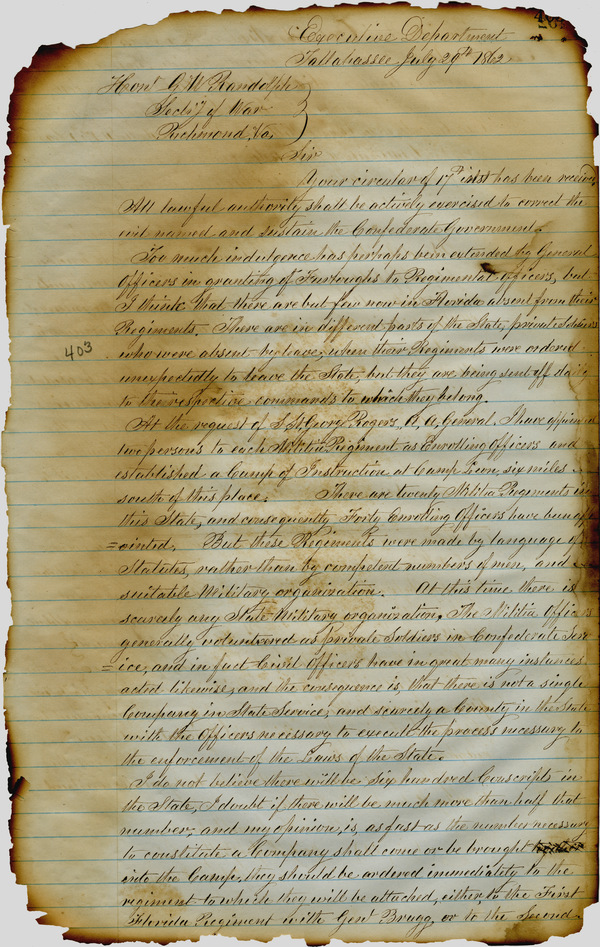 Executive Department
Tallahassee July 29th 1862
Honl. G W Randolph
Secty of War
Richmond Va.
Sir
Your circular of 17th inst has been received
All lawful authority shall be actively exercised to correct the
evil named and sustain the Confederate Government.
Too much indulgence has perhaps been extended by General
Officers in granting of Furloughs to Regimental officers, but
I think that there are but few now in Florida absent from their
Regiments. There are in different parts of the State, private soldiers
403
who were absent by leave, when their Regiments were ordered
unexpectedly to leave the State, but they are being sent off daily
to the respective commands to which they belong.
At the request of St. George Rogers, A. A. General, I have appointed
two persons to each Militia Regiment as Enrolling Officers and
established a Camp of Instruction at Camp Leon, six miles
south of this place. There are twenty Militia Regiments in
this State, and consequently Forty Enrolling Officers have been app
=ointed. But these Regiments were made by language of
Statutes, rather than by competent numbers of men, and
suitable military organization. At this time there is
scarcely any State Military organization, The Militia Officers
generally volunteered as private Soldiers in Confederate Serv
=ice, and in fact Civil Officers have in great many instances
acted likewise, and the consequence is, that there is not a single
Company in State Service, and scarcely a County in the State
with the Officers necessary to execute the process necessary to
the enforcement of the Laws of the State.
I do not believe there will be Six hundred Conscripts in
the State, I doubt if there will be much more than half that
number; and my opinion is, as fast as the number necessary
to constitute a Company shall come or be brought
into the Camp, they should be ordered immediately to the
regiment to which they will be attached, either to the First
Florida Regiment with Genl. Bragg, or to the Second